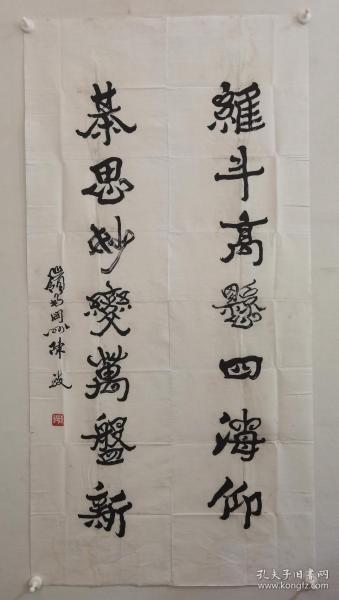 羅斗高懸四海仰
棊思妙變萬盤新
陳
孔夫子旧书网
www.kongfz.com